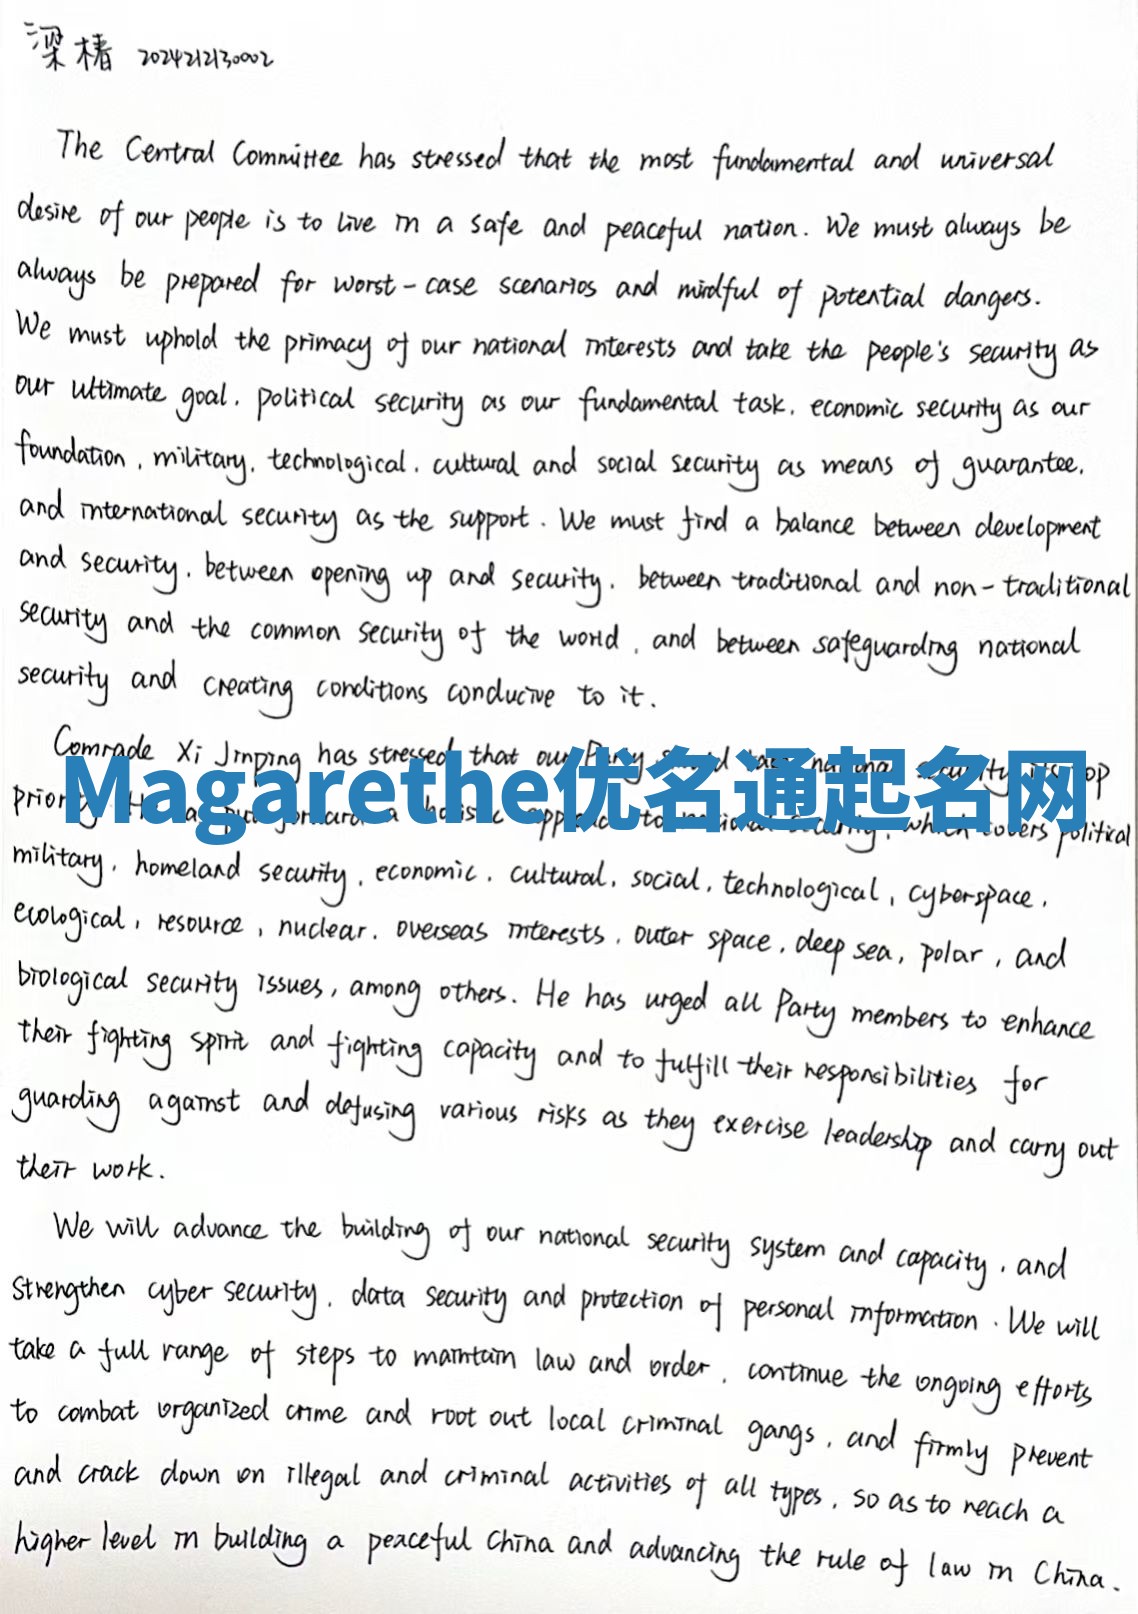 梁椿 2024212130002
The Central Committee has stressed that the most fundamental and universal
desire of our people is to live in a safe and peaceful nation. We must always be
always be prepared for worst-case scenarios and mindful of potential dangers.
We must uphold the primacy of our national interests and take the people's security as
our ultimate goal, political security as our fundamental task, economic security as our
foundation, military, technological, cultural and social security as means of guarantee,
and international security as the support. We must find a balance between development
and security, between opening up and security, between traditional and non-traditional
security and the common security of the world, and between safeguarding national
security and creating conditions conducive to it.
Comrade Xi Jinping has stressed that our Party national security its top
Magarethe优名通起名网
a to which covers political
military, homeland security, economic, cultural, social, technological, cyberspace,
ecological, resource, nuclear, overseas interests, outer space, deep sea, polar, and
biological security issues, among others. He has urged all Party members to enhance
their fighting spirit and fighting capacity and to fulfill their responsibilities for
guarding against and defusing various risks as they exercise leadership and carry out
their work.
We will advance the building of our national security system and capacity, and
strengthen cyber security, data security and protection of personal information. We will
take a full range of steps to maintain law and order, continue the ongoing efforts
to combat organized crime and root out local criminal gangs, and firmly prevent
and crack down on illegal and criminal activities of all types, so as to reach a
higher level in building a peaceful China and advancing the rule of law in China.